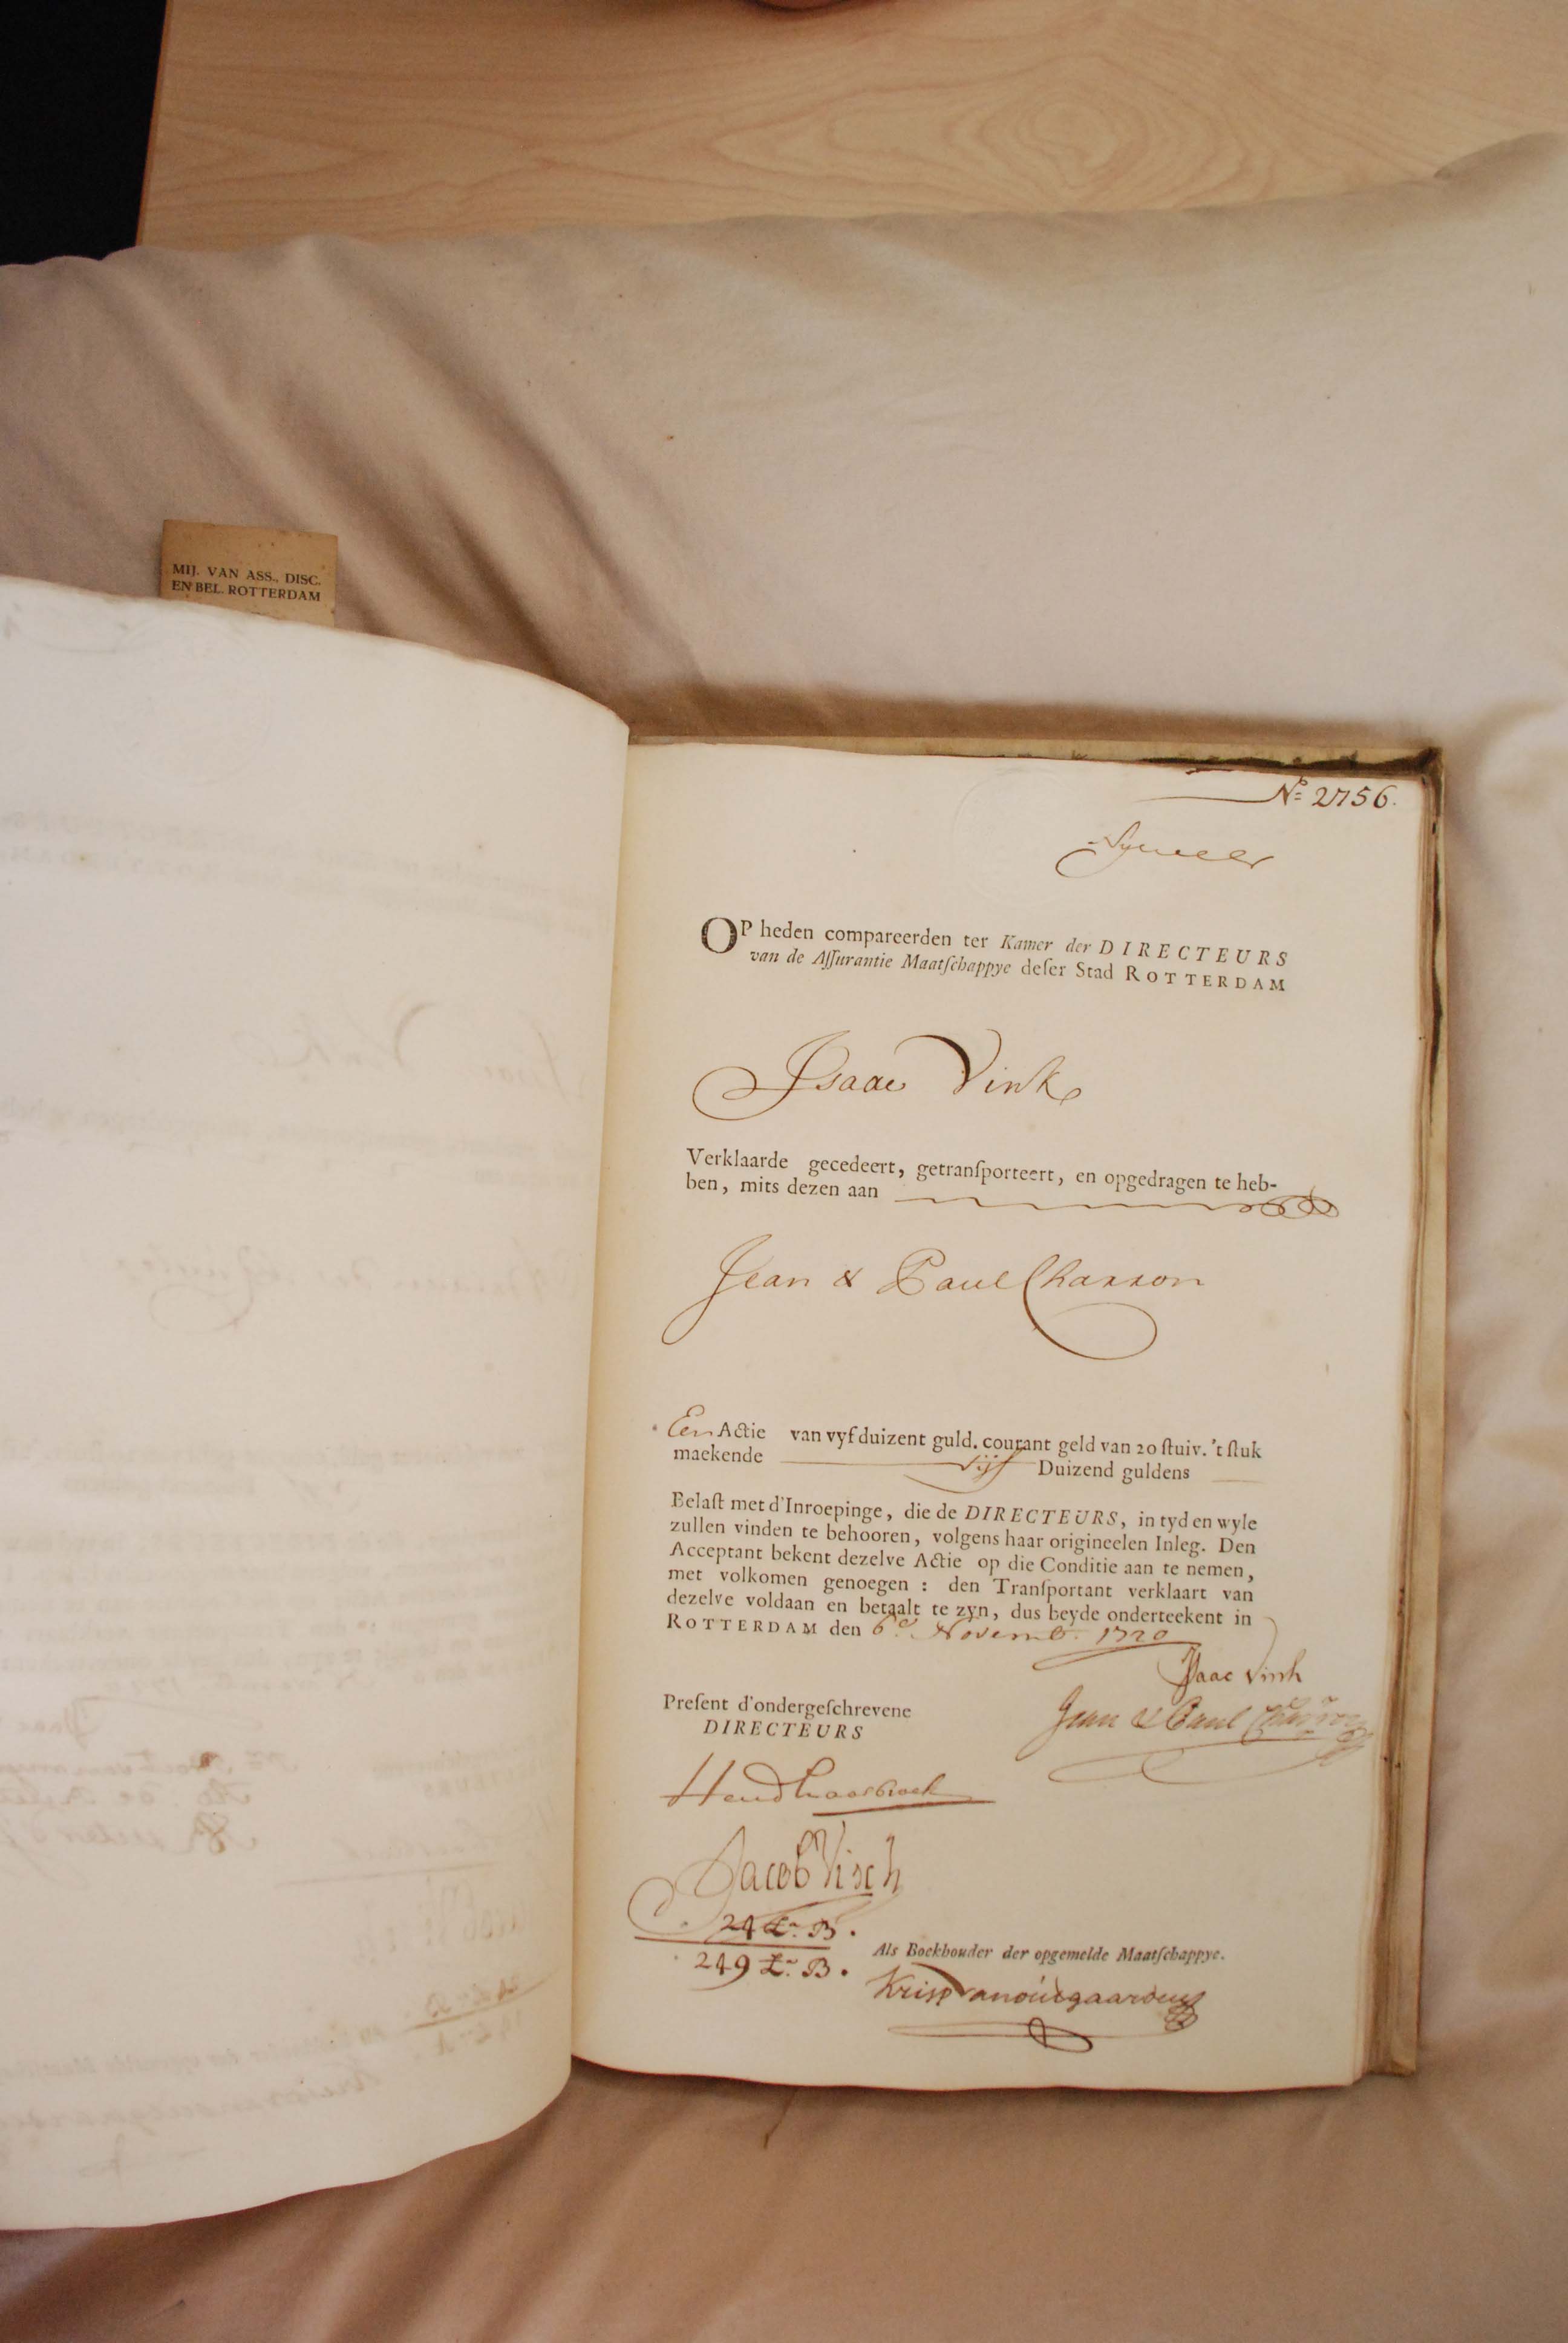 MIJ. VAN ASS., DISC.
EN BEL. ROTTERDAM
No 2756.
OP heden compareerden ter Kamer der DIRECTEURS
van de Aſſurantie Maatſchappye deſer Stad ROTTERDAM
Isaac Vink
Verklaarde gecedeert, getranſporteert, en opgedragen te heb-
ben, mits dezen aan
Jean & Paul Chasson
Een Actie van vyfduizent guld. courant geld van 20 ſtuiv. 't ſtuk
maekende vijf Duizend guldens
Belaſt met d'Inroepinge, die de DIRECTEURS, in tyd en wyle
zullen vinden te behooren, volgens haar origineelen Inleg. Den
Acceptant bekent dezelve Actie op die Conditie aan te nemen,
met volkomen genoegen : den Tranſportant verklaart van
dezelve voldaan en betaalt te zyn, dus beyde onderteekent in
ROTTERDAM den 6e Novemb. 1720
Isaac Vink
Jean & Paul Chasson
Preſent d'ondergeſchrevene
DIRECTEURS
Jacob Visch
24 Lr. B.
249 Lr. B.
Als Boekhouder der opgemelde Maatſchappye.